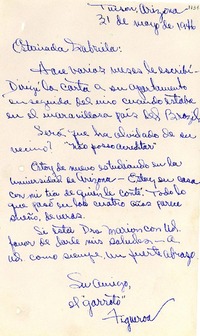 Tucson, Arizona
31 de mayo de 1946
Estimada Gabriela:
Hace varios meses le escribí.
Dirijí la carta a su apartamento
en seguida del mio cuando estaba
en el maravilloso país del Brazil.
Será que ha olvidado de su
vecino? No posso acreditar
Estoy de nuevo estudiando en la
Universidad de Arizona - Estoy en casa
con mi tía de quien le conté. Todo lo
que pasó en los cuatro años parece
sueño, de veras.
Si está Dra Marion con Ud.
favor de darle mis saludos - a
Ud. como siempre, un fuerte abrazo.
Su amigo,
el "garroto"
Figueroa